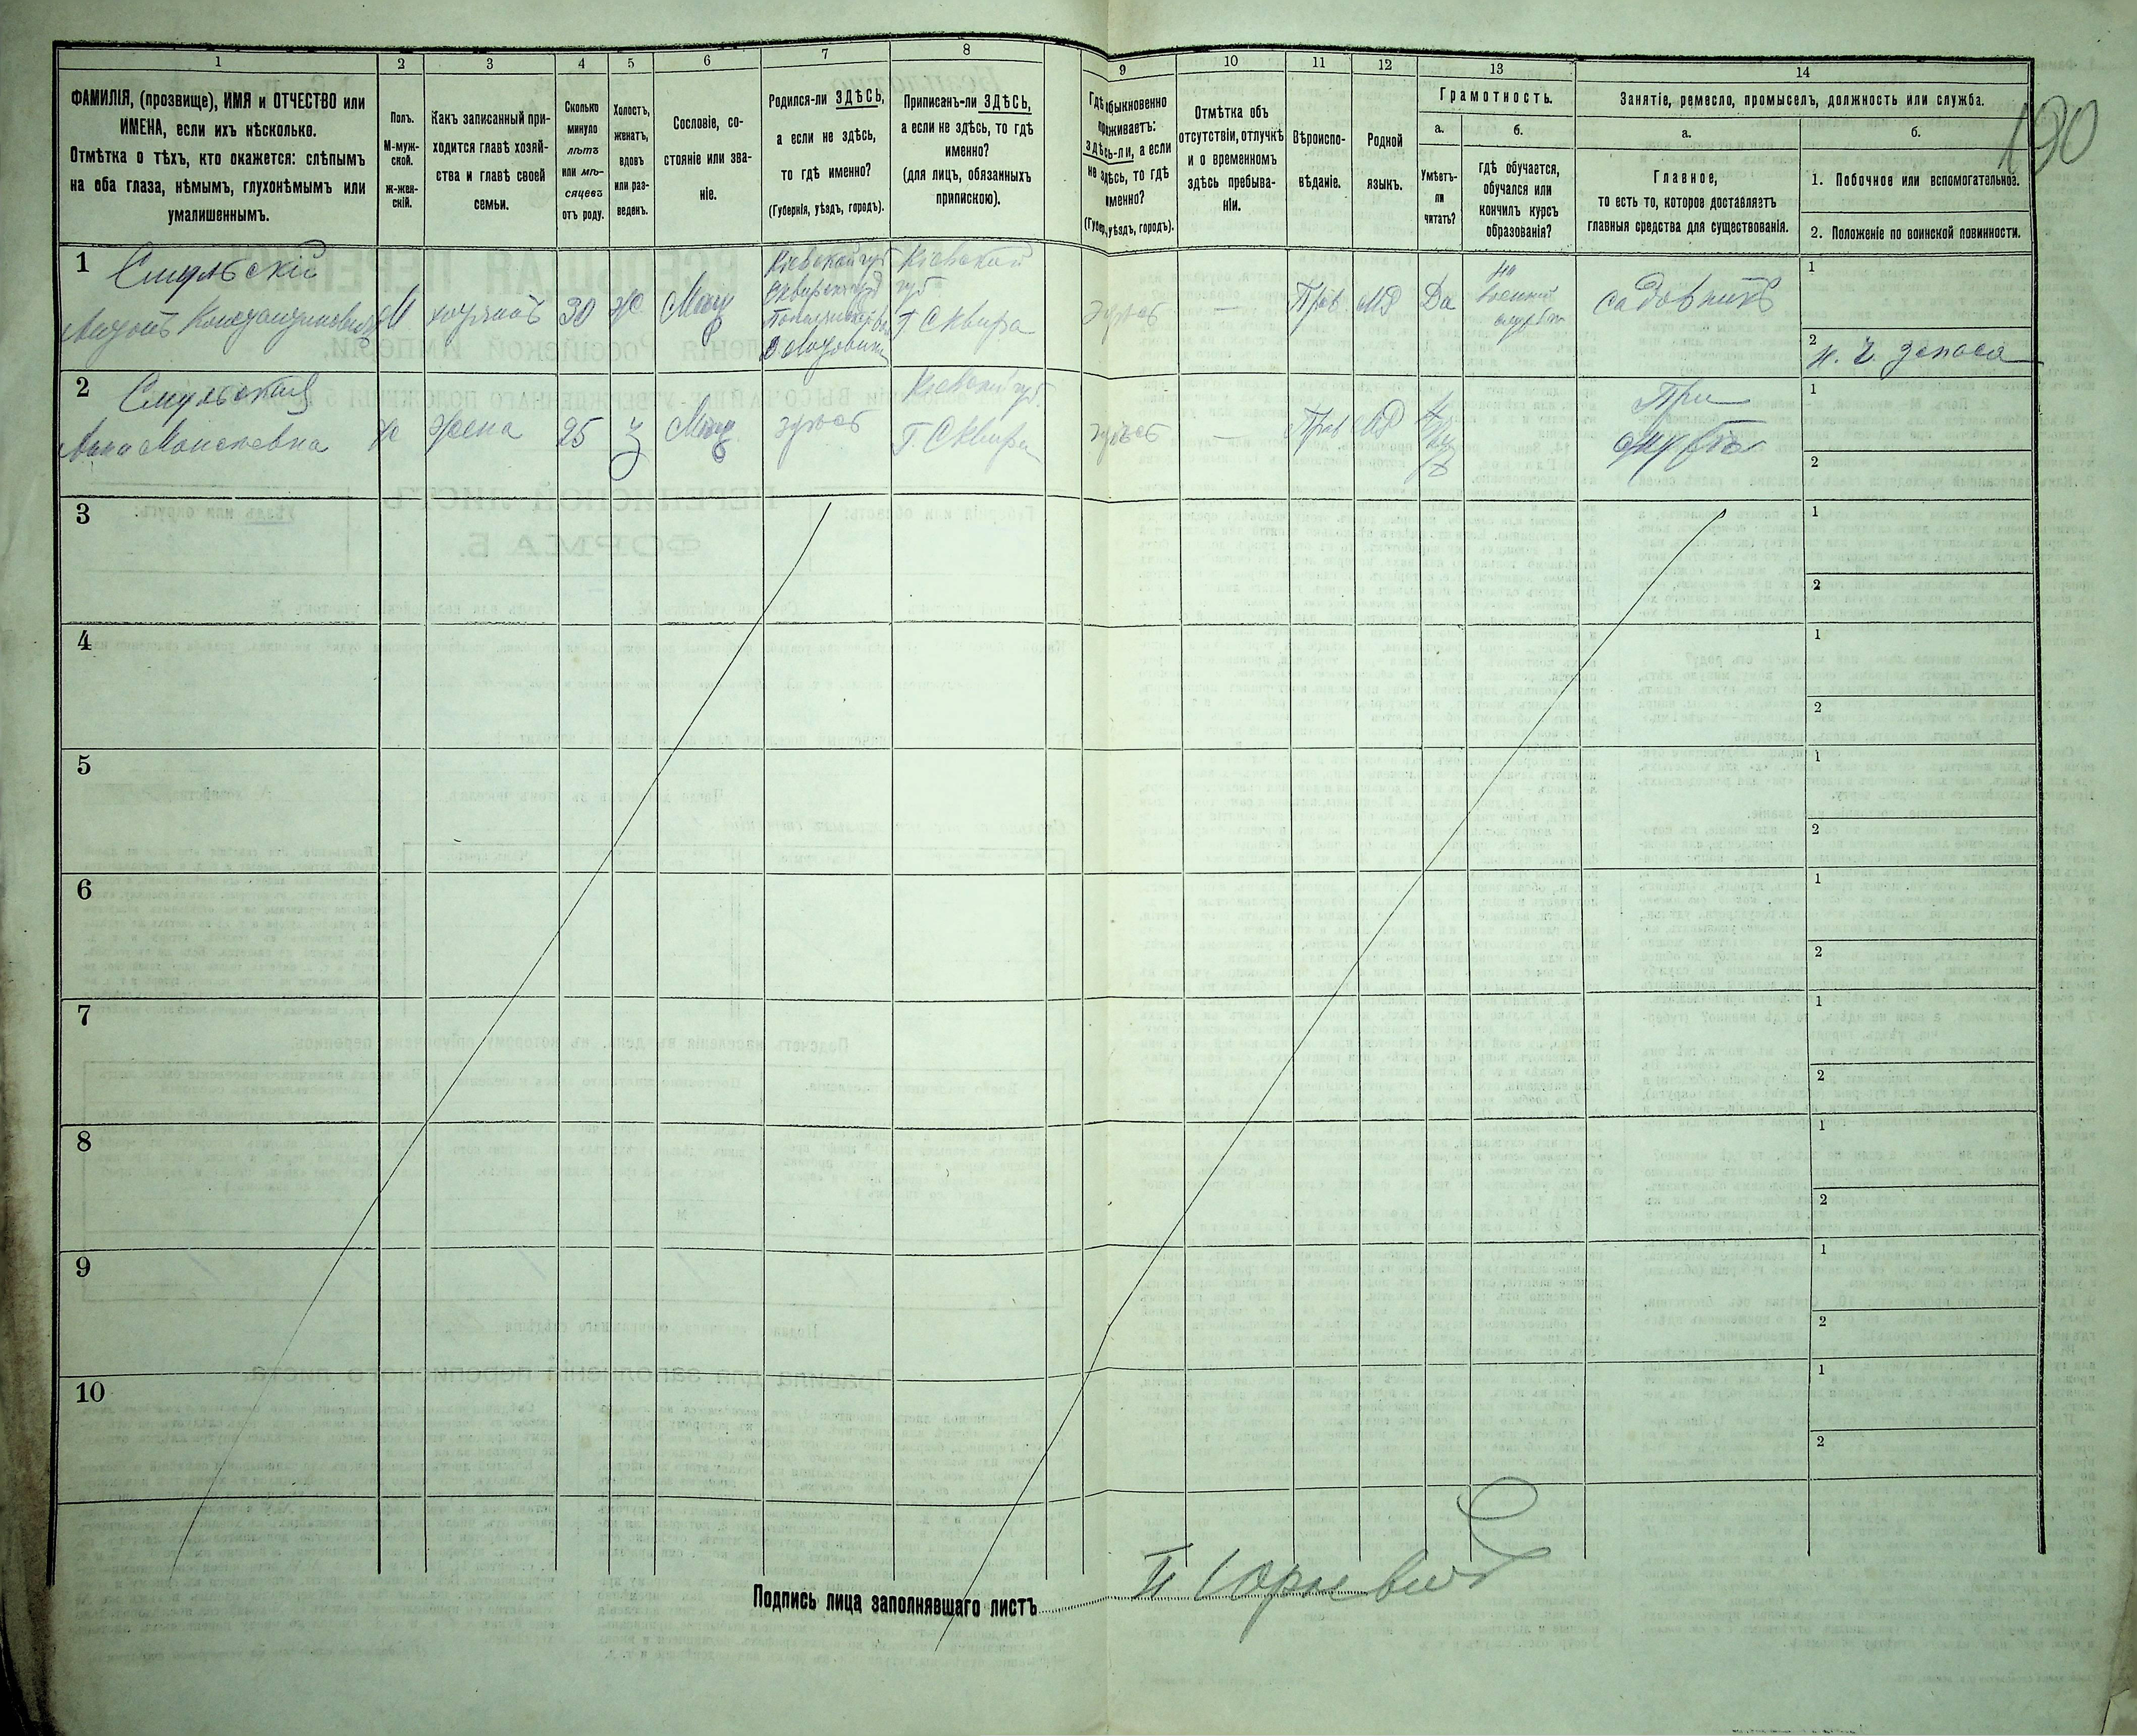 1 2 3 4 5 6 7 8 9 10 11 12 13 14
ФАМИЛІЯ, (прозвище), ИМЯ и ОТЧЕСТВО или
ИМЕНА, если ихъ нѣсколько.
Отмѣтка о тѣхъ, кто окажется: слѣпымъ
на оба глаза, нѣмымъ, глухонѣмымъ или
умалишеннымъ.
Полъ.
М-муж-
ской.
ж-жен-
скій.
Какъ записанный при-
ходится главѣ хозяй-
ства и главѣ своей
семьи.
Сколько
минуло
лѣтъ
или мѣ-
сяцевъ
отъ роду.
Холостъ,
женатъ,
вдовъ
или раз-
веденъ.
Сословіе, со-
стояніе или зва-
ніе.
Родился-ли ЗДѢСЬ,
а если не здѣсь,
то гдѣ именно?
(Губернія, уѣздъ, городъ).
Приписанъ-ли ЗДѢСЬ,
а если не здѣсь, то гдѣ
именно?
(для лицъ, обязанныхъ
припискою).
Гдѣ обыкновенно
проживаетъ:
здѣсь-ли, а если
не здѣсь, то гдѣ
именно?
(Губер., уѣздъ, городъ).
Отмѣтка объ
отсутствіи, отлучкѣ
и о временномъ
здѣсь пребыва-
ніи.
Вѣроиспо-
вѣданіе.
Родной
языкъ.
Грамотность.
а. б.
Умѣетъ-
ли
читать?
гдѣ обучается,
обучался или
кончилъ курсъ
образованія?
Занятіе, ремесло, промыселъ, должность или служба.
а. б.
Главное,
то есть то, которое доставляетъ
главныя средства для существованія.
1. Побочное или вспомогательное.
2. Положеніе по воинской повинности.
190
1
Смульскій
М
30
ж
Мѣщ
Кіевской губ
Кіевской
губ
Г Сквира
здѣсь
—
Прав.
МР
Да
садовникъ
1
2
н. ч. запаса
2
Смульская
Анна Моисеевна
ж
жена
25
з
Мѣщ
здѣсь
Кіевской губ.
Г. Сквира
здѣсь
—
Прав
МР
При
мужѣ
1
2
3
1
2
4
1
2
5
1
2
6
1
2
7
1
2
8
1
2
9
1
2
10
1
2
Подпись лица заполнявшаго листъ